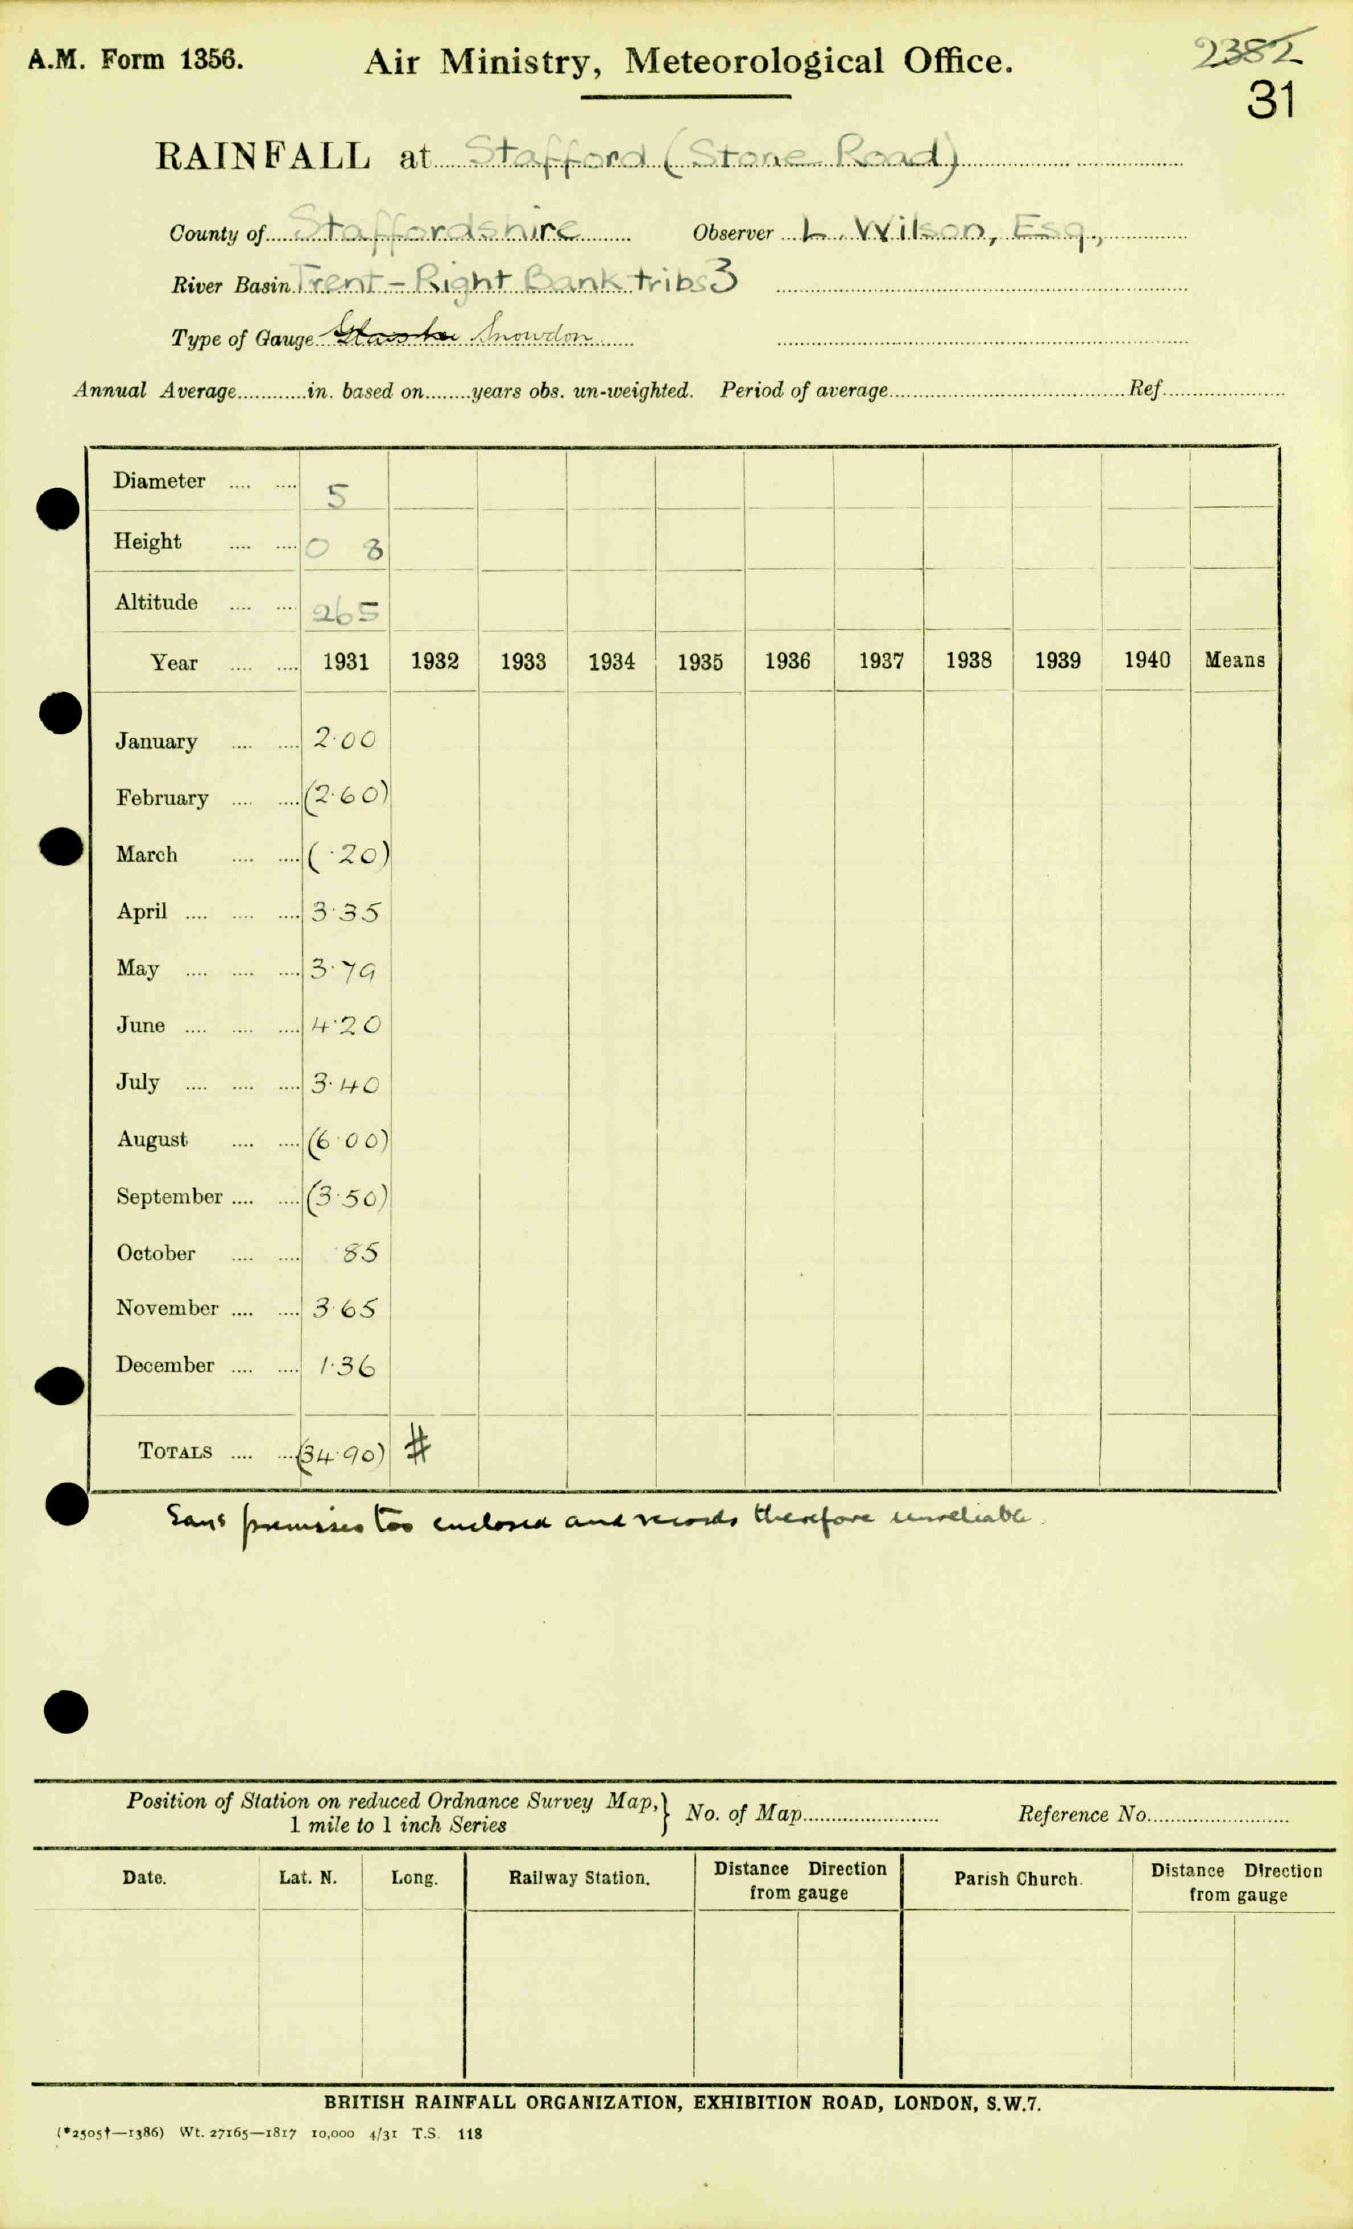 A.M. Form 1356.
Air Ministry, Meteorological Office.
2382
31
RAINFALL at Stafford (Stone Road)
County of Staffordshire Observer L. Wilson, Esq.,
River Basin Trent - Right Bank tribs 3
Type of Gauge Glaisher Snowdon
Annual Average in. based on years obs. un-weighted. Period of average Ref.
Diameter 5
Height 0 8
Altitude 265
Year 1931 1932 1933 1934 1935 1936 1937 1938 1939 1940 Means
January 2·00
February (2·60)
March (·20)
April 3·35
May 3·79
June 4·20
July 3·40
August (6·00)
September (3·50)
October ·85
November 3·65
December 1·36
TOTALS (34·90) #
Says premises too enclosed and records therefore unreliable.
Position of Station on reduced Ordnance Survey Map, } No. of Map Reference No.
1 mile to 1 inch Series
Date. Lat. N. Long. Railway Station. Distance Direction from gauge Parish Church. Distance Direction from gauge
BRITISH RAINFALL ORGANIZATION, EXHIBITION ROAD, LONDON, S.W.7.
(*2505†—1386) Wt. 27165—1817 10,000 4/31 T.S. 118